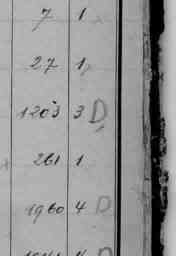 7 1
27 1
1203 3 D
261 1
1960 4 D